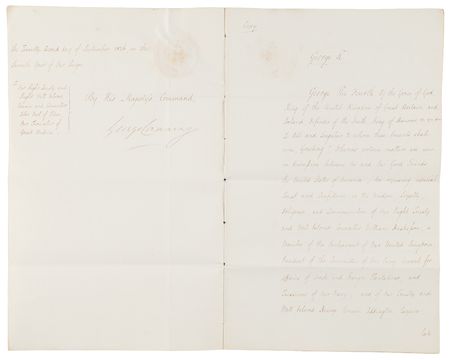 the Twenty Second day of September 1826 in the
Seventh Year of Our Reign.
Our Right Trusty and
Right Well beloved
Cousin and Councillor
Our Chancellor of
Great Britain
By His Majesty's Command.
George Canning
Copy
George R.
George the Fourth by the Grace of God
King of the United Kingdom of Great Britain and
Ireland, Defender of the Faith, King of Hanover
To All and Singular to whom these Presents shall
come, Greeting! Whereas certain matters are now
in discussion between Us and Our Good Friends
the United States of America; We reposing especial
Trust and Confidence in the Wisdom, Loyalty,
Diligence, and Circumspection of Our Right Trusty
and Well beloved Councillor William Huskisson, a
Member of the Parliament of Our United Kingdom,
President of the Committee of Our Privy Council for
Affairs of Trade and Foreign Plantations, and
Treasurer of Our Navy; and of Our Trusty and
Well beloved Henry Unwin Addington Esquire